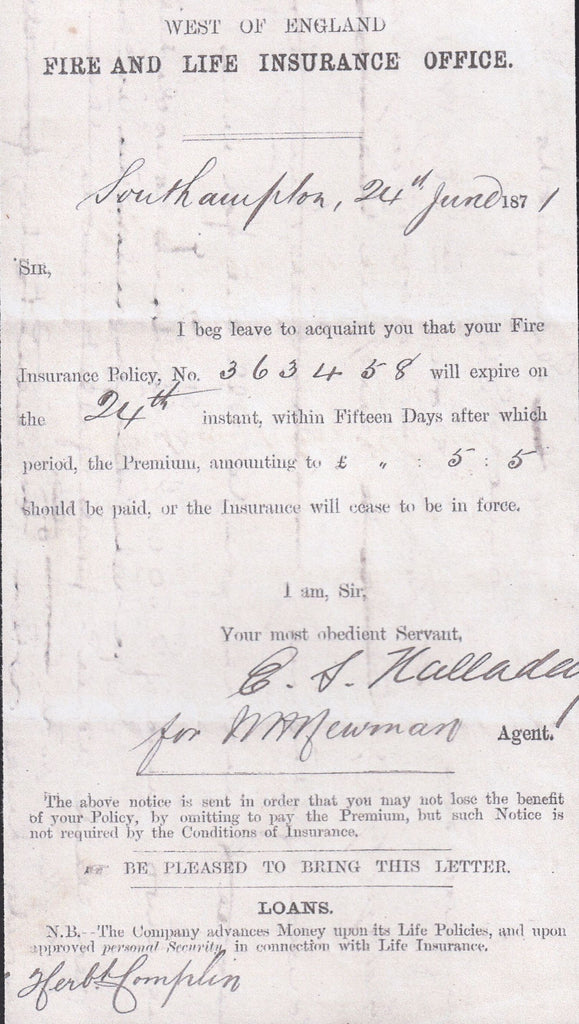 WEST OF ENGLAND
FIRE AND LIFE INSURANCE OFFICE.
Southampton, 24th June 1871
SIR,
I beg leave to acquaint you that your Fire
Insurance Policy, No. 363458 will expire on
the 24th instant, within Fifteen Days after which
period, the Premium, amounting to £ " : 5 : 5
should be paid, or the Insurance will cease to be in force.
I am, Sir,
Your most obedient Servant,
E. S. Halladay
for W H Newman Agent.
The above notice is sent in order that you may not lose the benefit
of your Policy, by omitting to pay the Premium, but such Notice is
not required by the Conditions of Insurance.
☞ BE PLEASED TO BRING THIS LETTER.
LOANS.
N.B.--The Company advances Money upon its Life Policies, and upon
approved personal Security, in connection with Life Insurance.
Herbt Complin